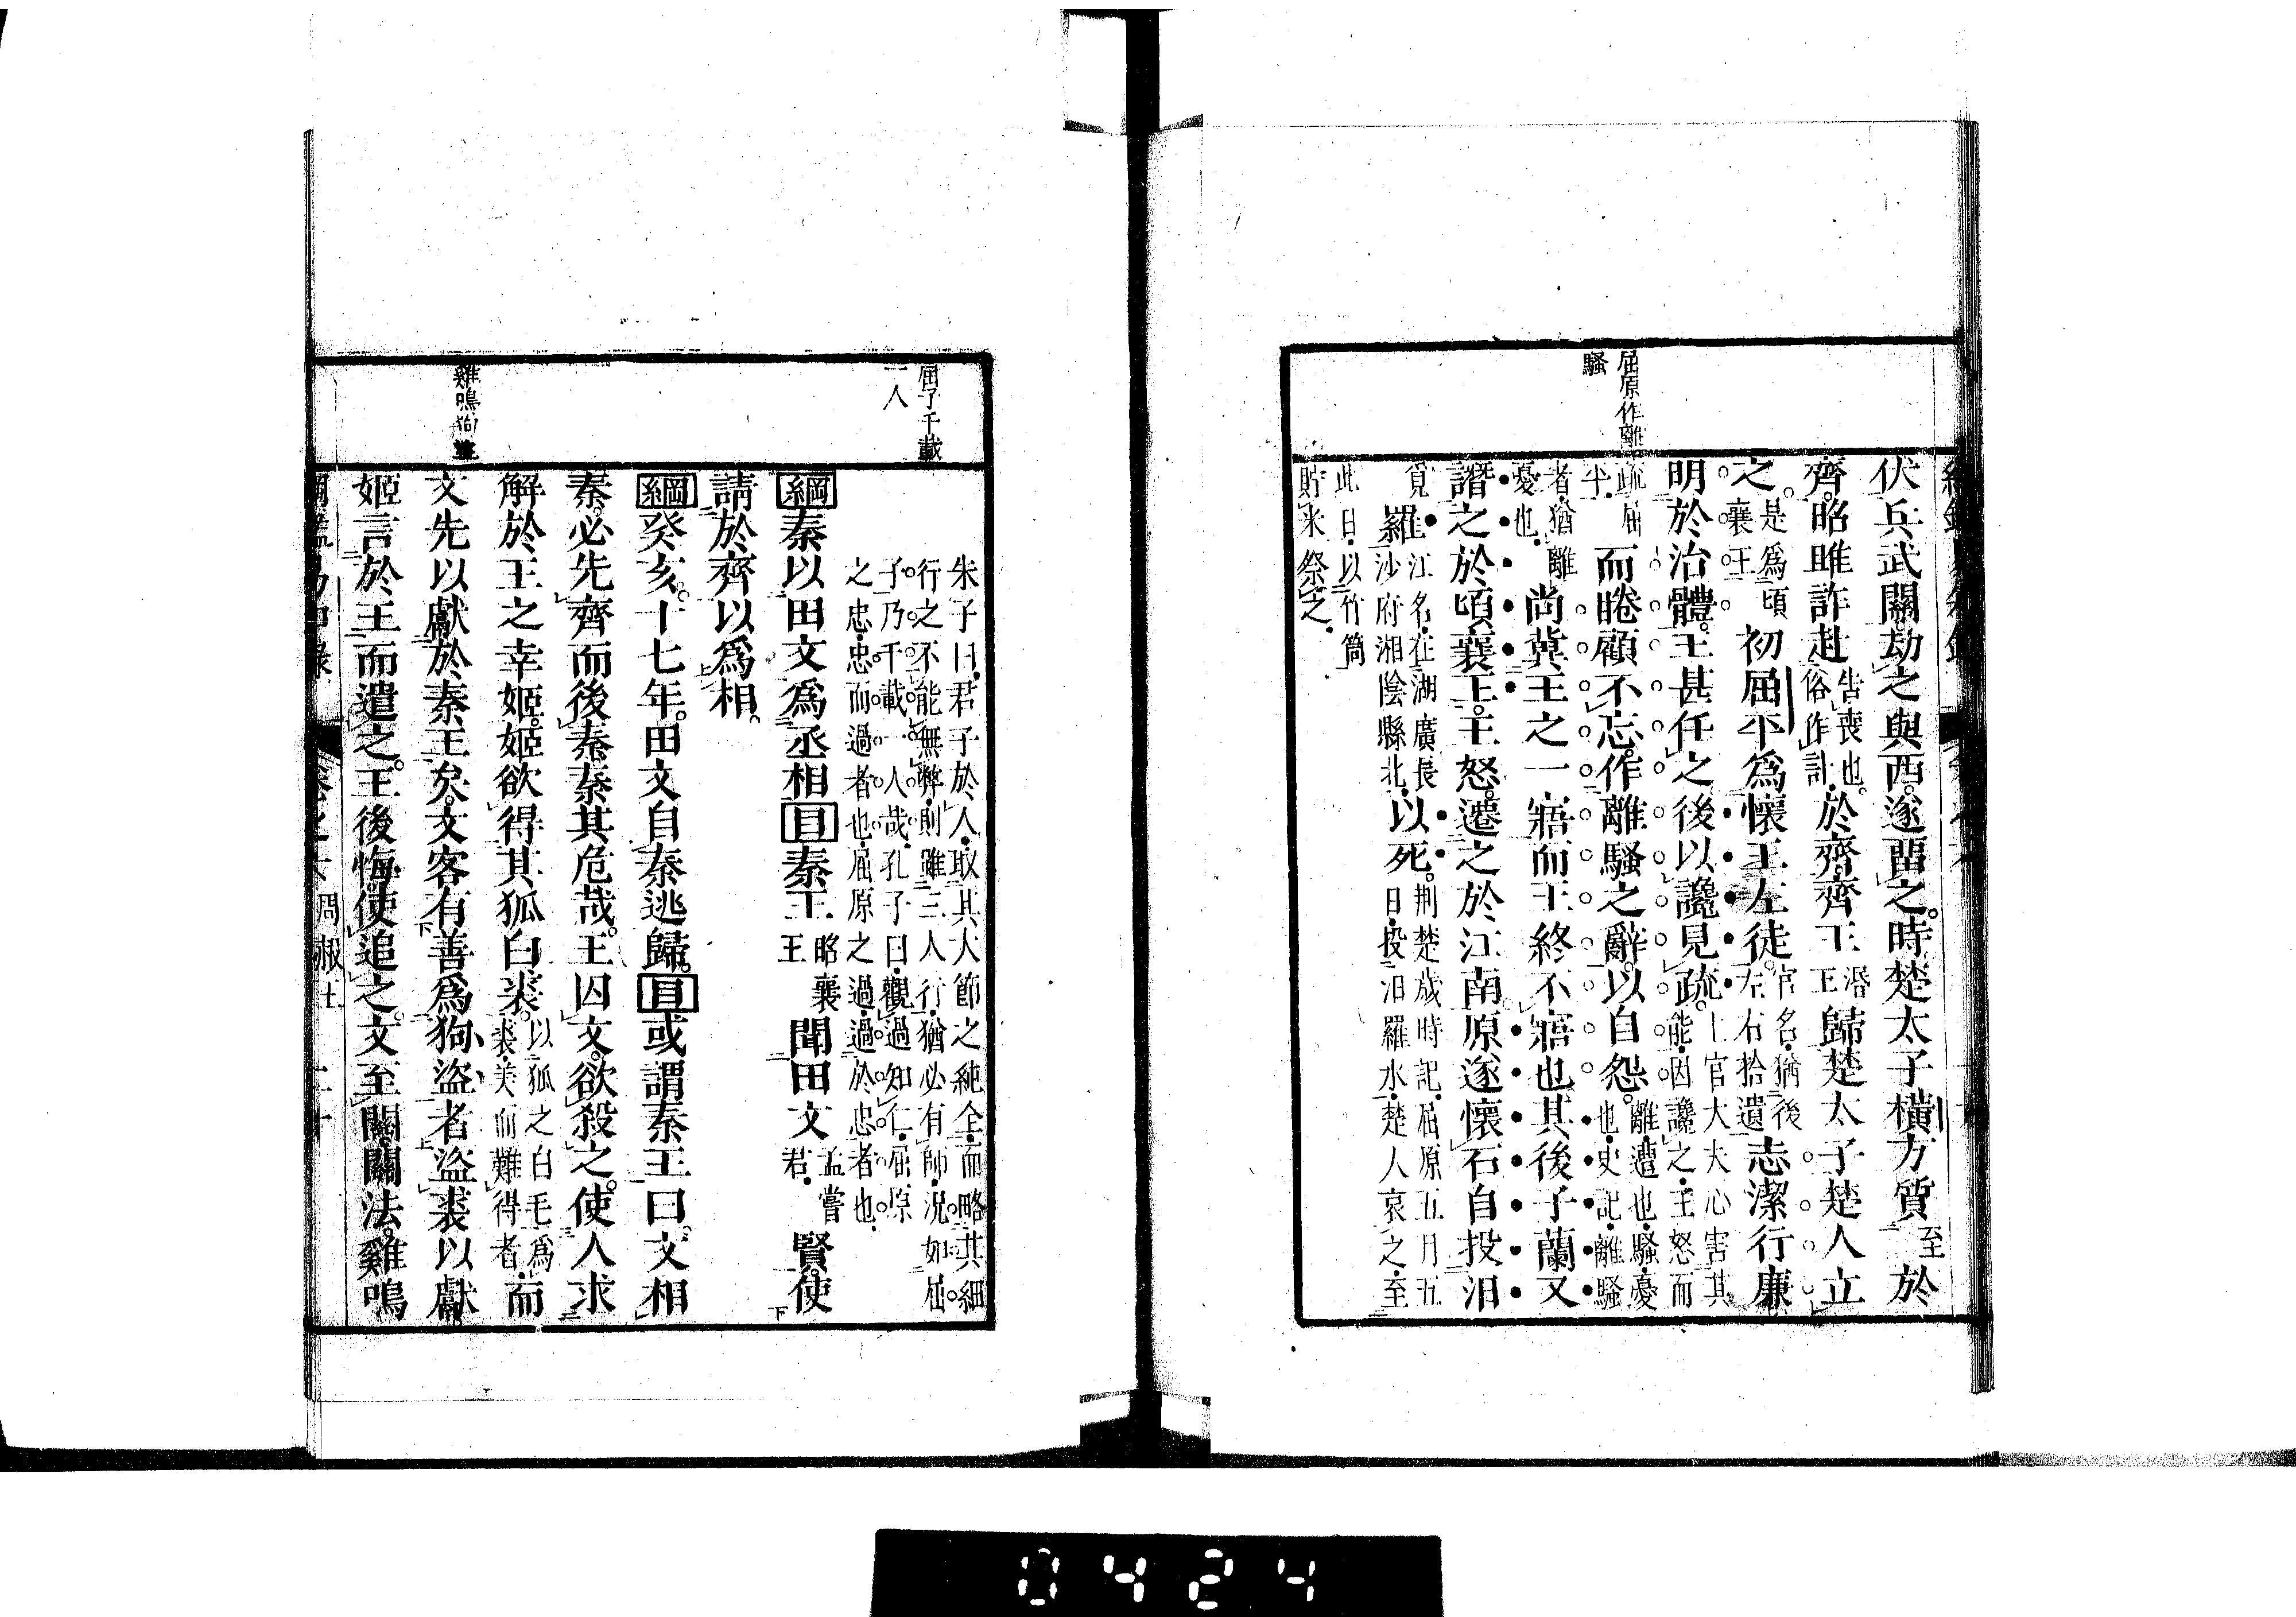 屈原作離
騷
伏兵武關劫之與西遂畱之時楚太子橫方質至於
齊昭雎詐赴告喪也俗作訃於齊齊王湣王歸楚太子楚人立
之是爲頃襄王初屈平爲懷王左徒官名猶後左右拾遺志潔行廉
明於治體王甚任之後以讒見疏上官大夫心害其能因讒之王怒而
疏屈平而睠顧不忘作離騷之辭以自怨離遭也騷憂也史記離騷
者猶離憂也尚冀王之一寤而王終不寤也其後子蘭又
譖之於頃襄王王怒遷之於江南原遂懷石自投汨
覓羅江名在湖廣長沙府湘陰縣北以死荆楚歲時記屈原五月五日投汨羅水楚人哀之至
此日以竹筒貯米祭之
屈子千載
一人
朱子曰君子於人取其大節之純全而略其細
行之不能無弊則雖三人行猶必有師況如屈
子乃千載一人哉孔子曰觀過知仁屈原
之忠忠而過者也屈原之過過於忠者也
綱秦以田文爲丞相目秦王昭襄王聞田文孟嘗君賢使
請於齊以爲相
綱癸亥十七年田文自秦逃歸目或謂秦王曰文相
秦必先齊而後秦秦其危哉王囚文欲殺之使人求
解於王之幸姬姬欲得其狐白裘以狐之白毛爲裘美而難得者而
文先以獻於秦王矣文客有善爲狗盜者盜裘以獻
姬言於王而遣之王後悔使追之文至關關法雞鳴
雞鳴狗盜
卷之六 周赧王 二十
0424